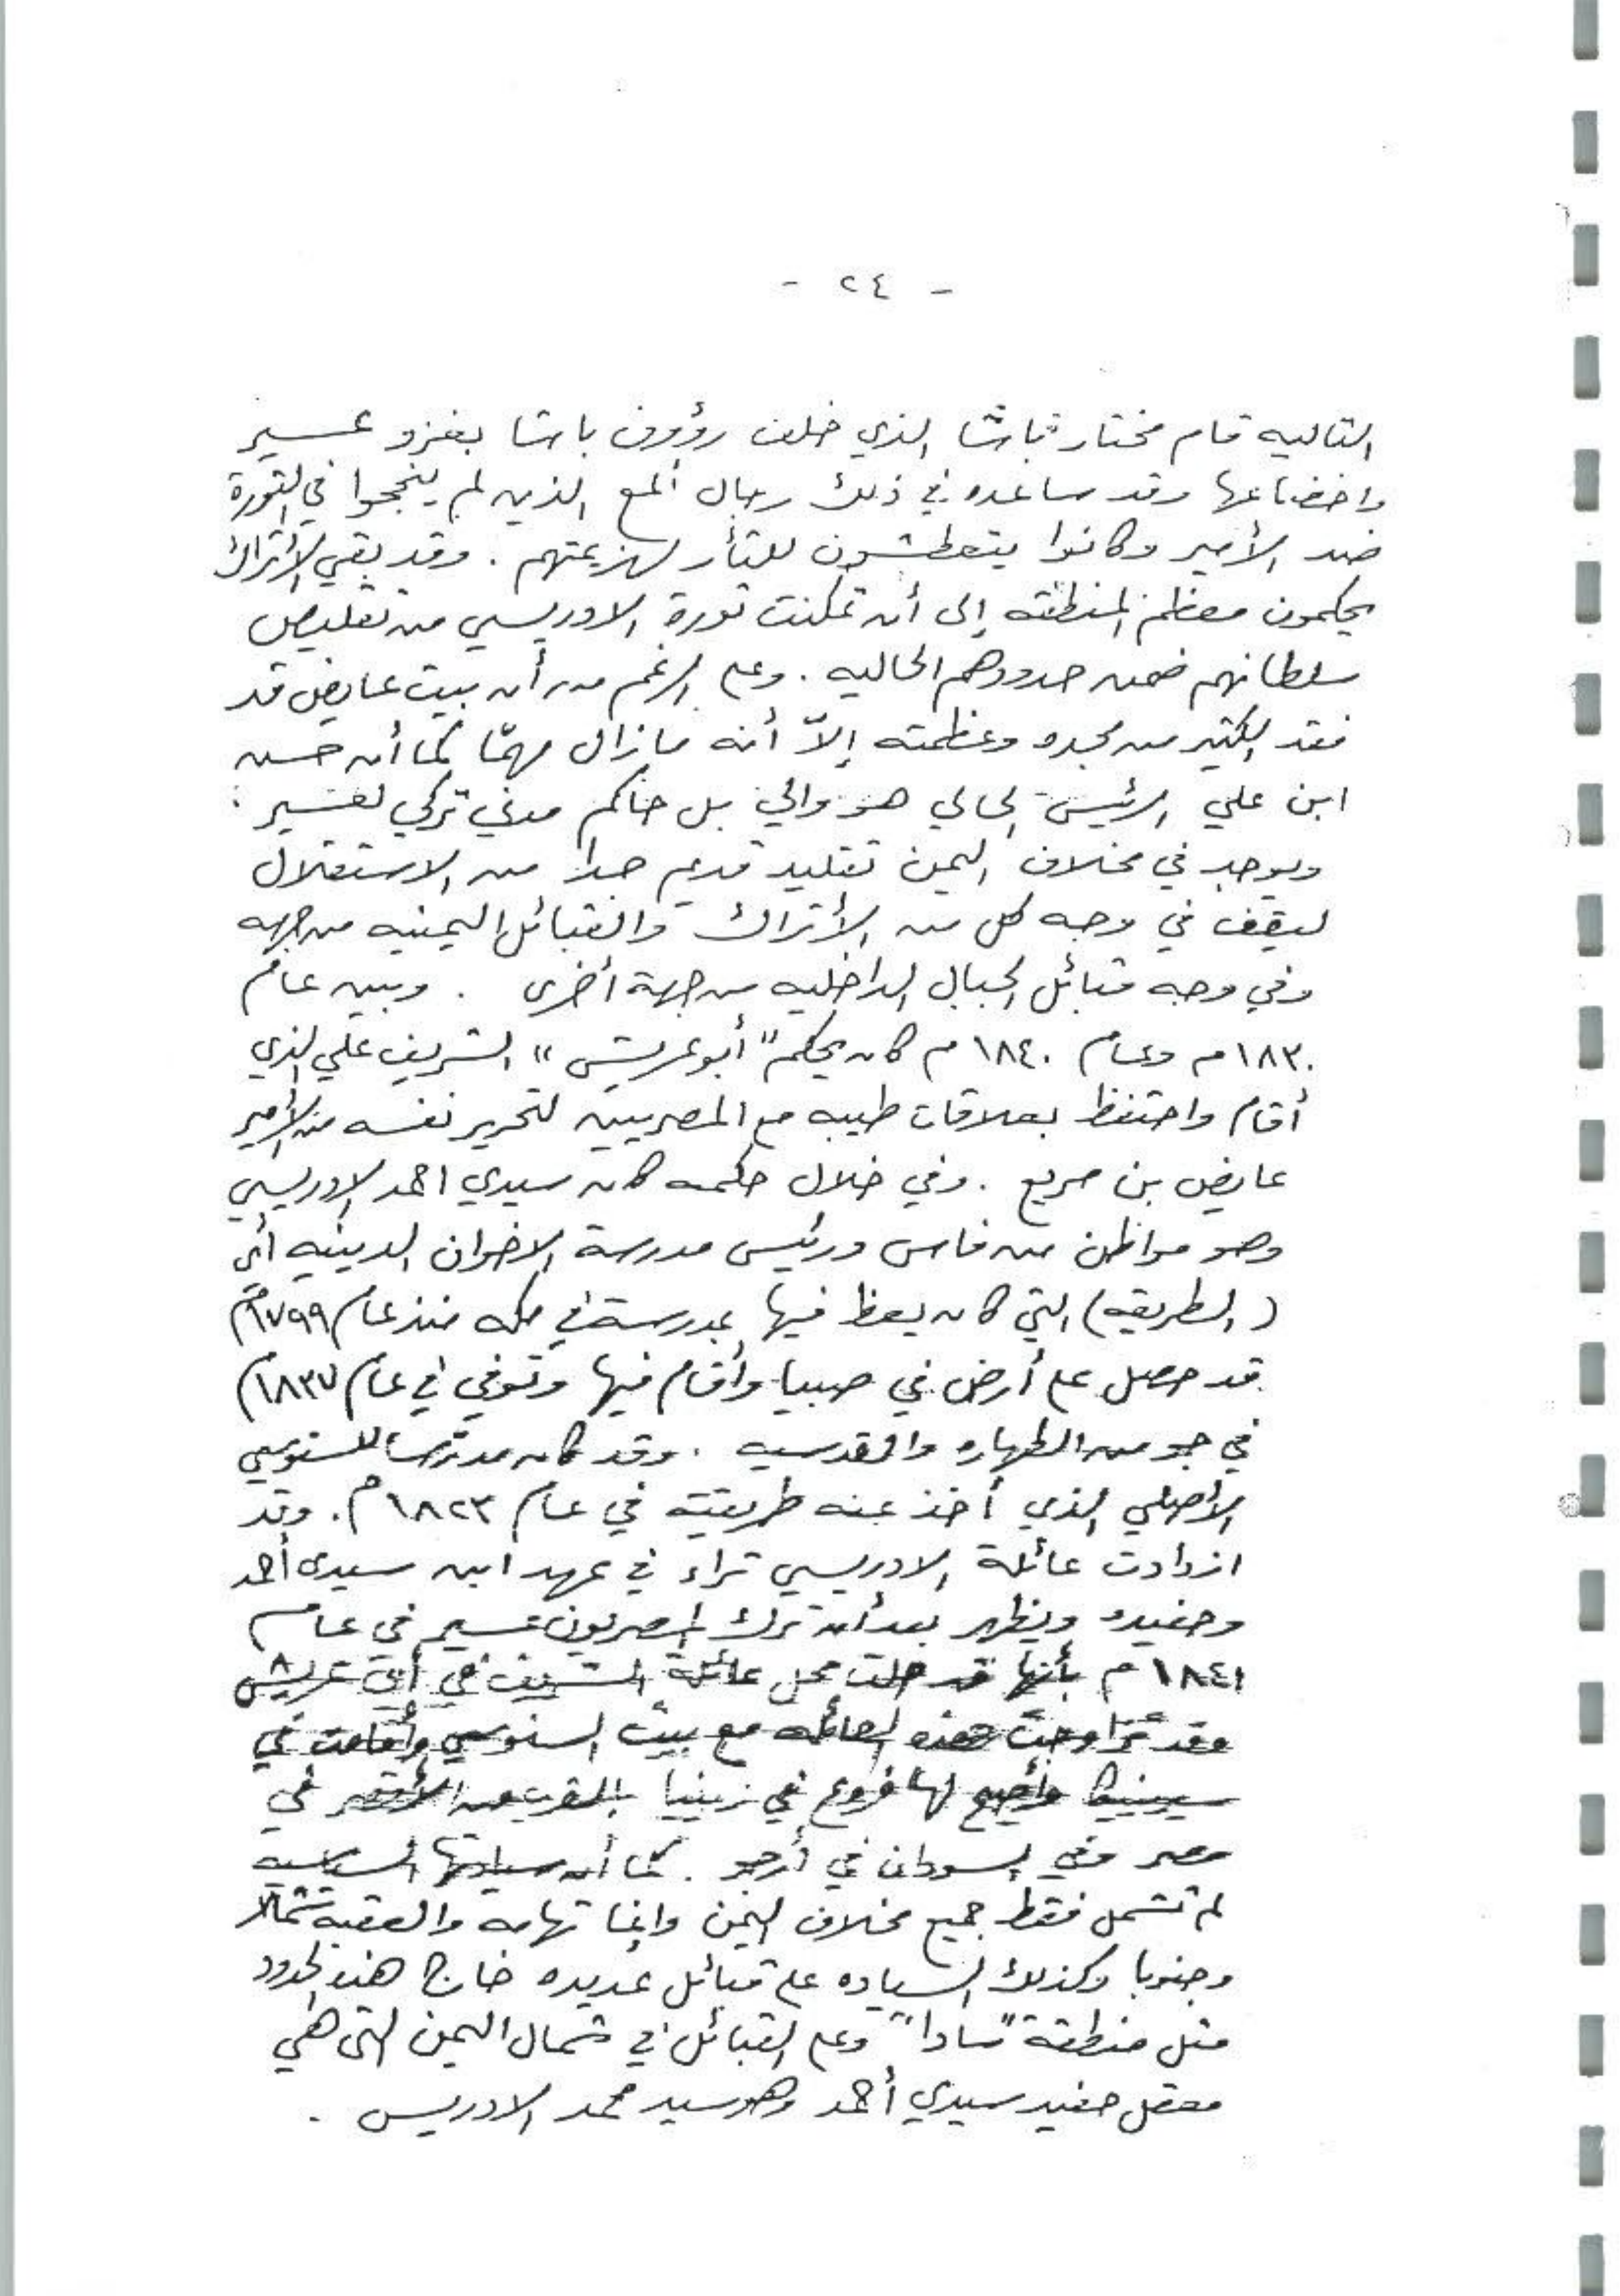 - ٢٤ -
التاليه قام مختار باشا الذي خلف رؤوف باشا بغزو عسير
واخضاعها وقد ساعده في ذلك رجال ألمع الذين لم ينجحوا في الثورة
ضد الأمير وكانوا يتعطشون للثأر لهزيمتهم . وقد بقي الأتراك
يحكمون معظم المنطقه إلى أن تمكنت ثورة الادريسي من تقليص
سلطانهم ضمن حدودهم الحاليه . وعلى الرغم من أن بيت عايض قد
فقد الكثير من مجده وعظمته إلاّ أنه مازال مهمّا كما أن حسن
ابن علي الرئيس الحالي هو والي بل حاكم مدني تركي لعسير .
ويوجد في مخلاف اليمن تقليد قديم جدا من الاستقلال
ليقف في وجه كل من الأتراك والقبائل اليمنيه من جهه
وفي وجه قبائل الجبال الداخليه من جهة أخرى . وبين عام
١٨٣٠م وعام ١٨٤٠م كان يحكم "أبو عريش" الشريف علي الذي
أقام واحتفظ بعلاقات طيبه مع المصريين لتحرير نفسه من الأمير
عايض بن مريع . وفي خلال حكمه كان سيدي احمد الادريسي
وهو مواطن من فاس ورئيس مدرسة الاخوان الدينيه أي
(الطريقه) التي كان يعظ فيها بمدرسة في مكه منذ عام ١٧٩٩م
قد حصل على أرض في صبيا وأقام فيها وتوفي في عام ١٨٣٧م
في جو من الطهاره والقدسيه . وقد كان مدرسا للسنوسي
الأصلي الذي أخذ عنه طريقته في عام ١٨٢٣م . وقد
ازدادت عائلة الادريسي ثراء في عهد ابن سيدي أحمد
وحفيده ويظهر بعد أن ترك المصريون عسير في عام
١٨٤١م بأنها قد حلت محل عائلة الشريف في أبي عريش
وقد تزاوجت هذه العائله مع بيت السنوسي وأقامت في
سيرينيكا وأصبح لها فروع في زينيا بالقرب من الأقصر في
مصر وفي السودان في أرجو . كما أن سيادتها السياسيه
لم تشمل فقط جميع مخلاف اليمن وانما تهامه والعقبه شمالا
وجنوبا وكذلك السياده على قبائل عديده خارج هذه الحدود
مثل منطقة "سادا" وعلى القبائل في شمال اليمن التي هي
معقل حفيد سيدي أحمد وهو سيد محمد الادريس .